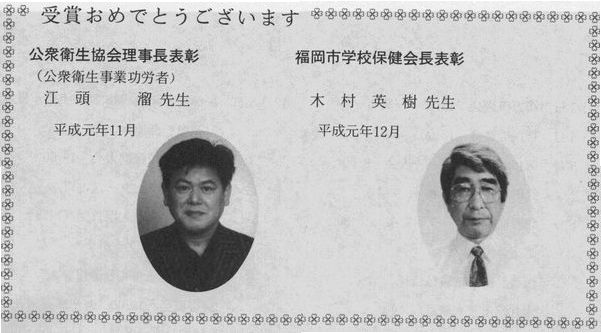 受賞おめでとうございます
公衆衛生協会理事長表彰
（公衆衛生事業功労者）
江頭 溜 先生
平成元年11月
福岡市学校保健会長表彰
木村英樹 先生
平成元年12月